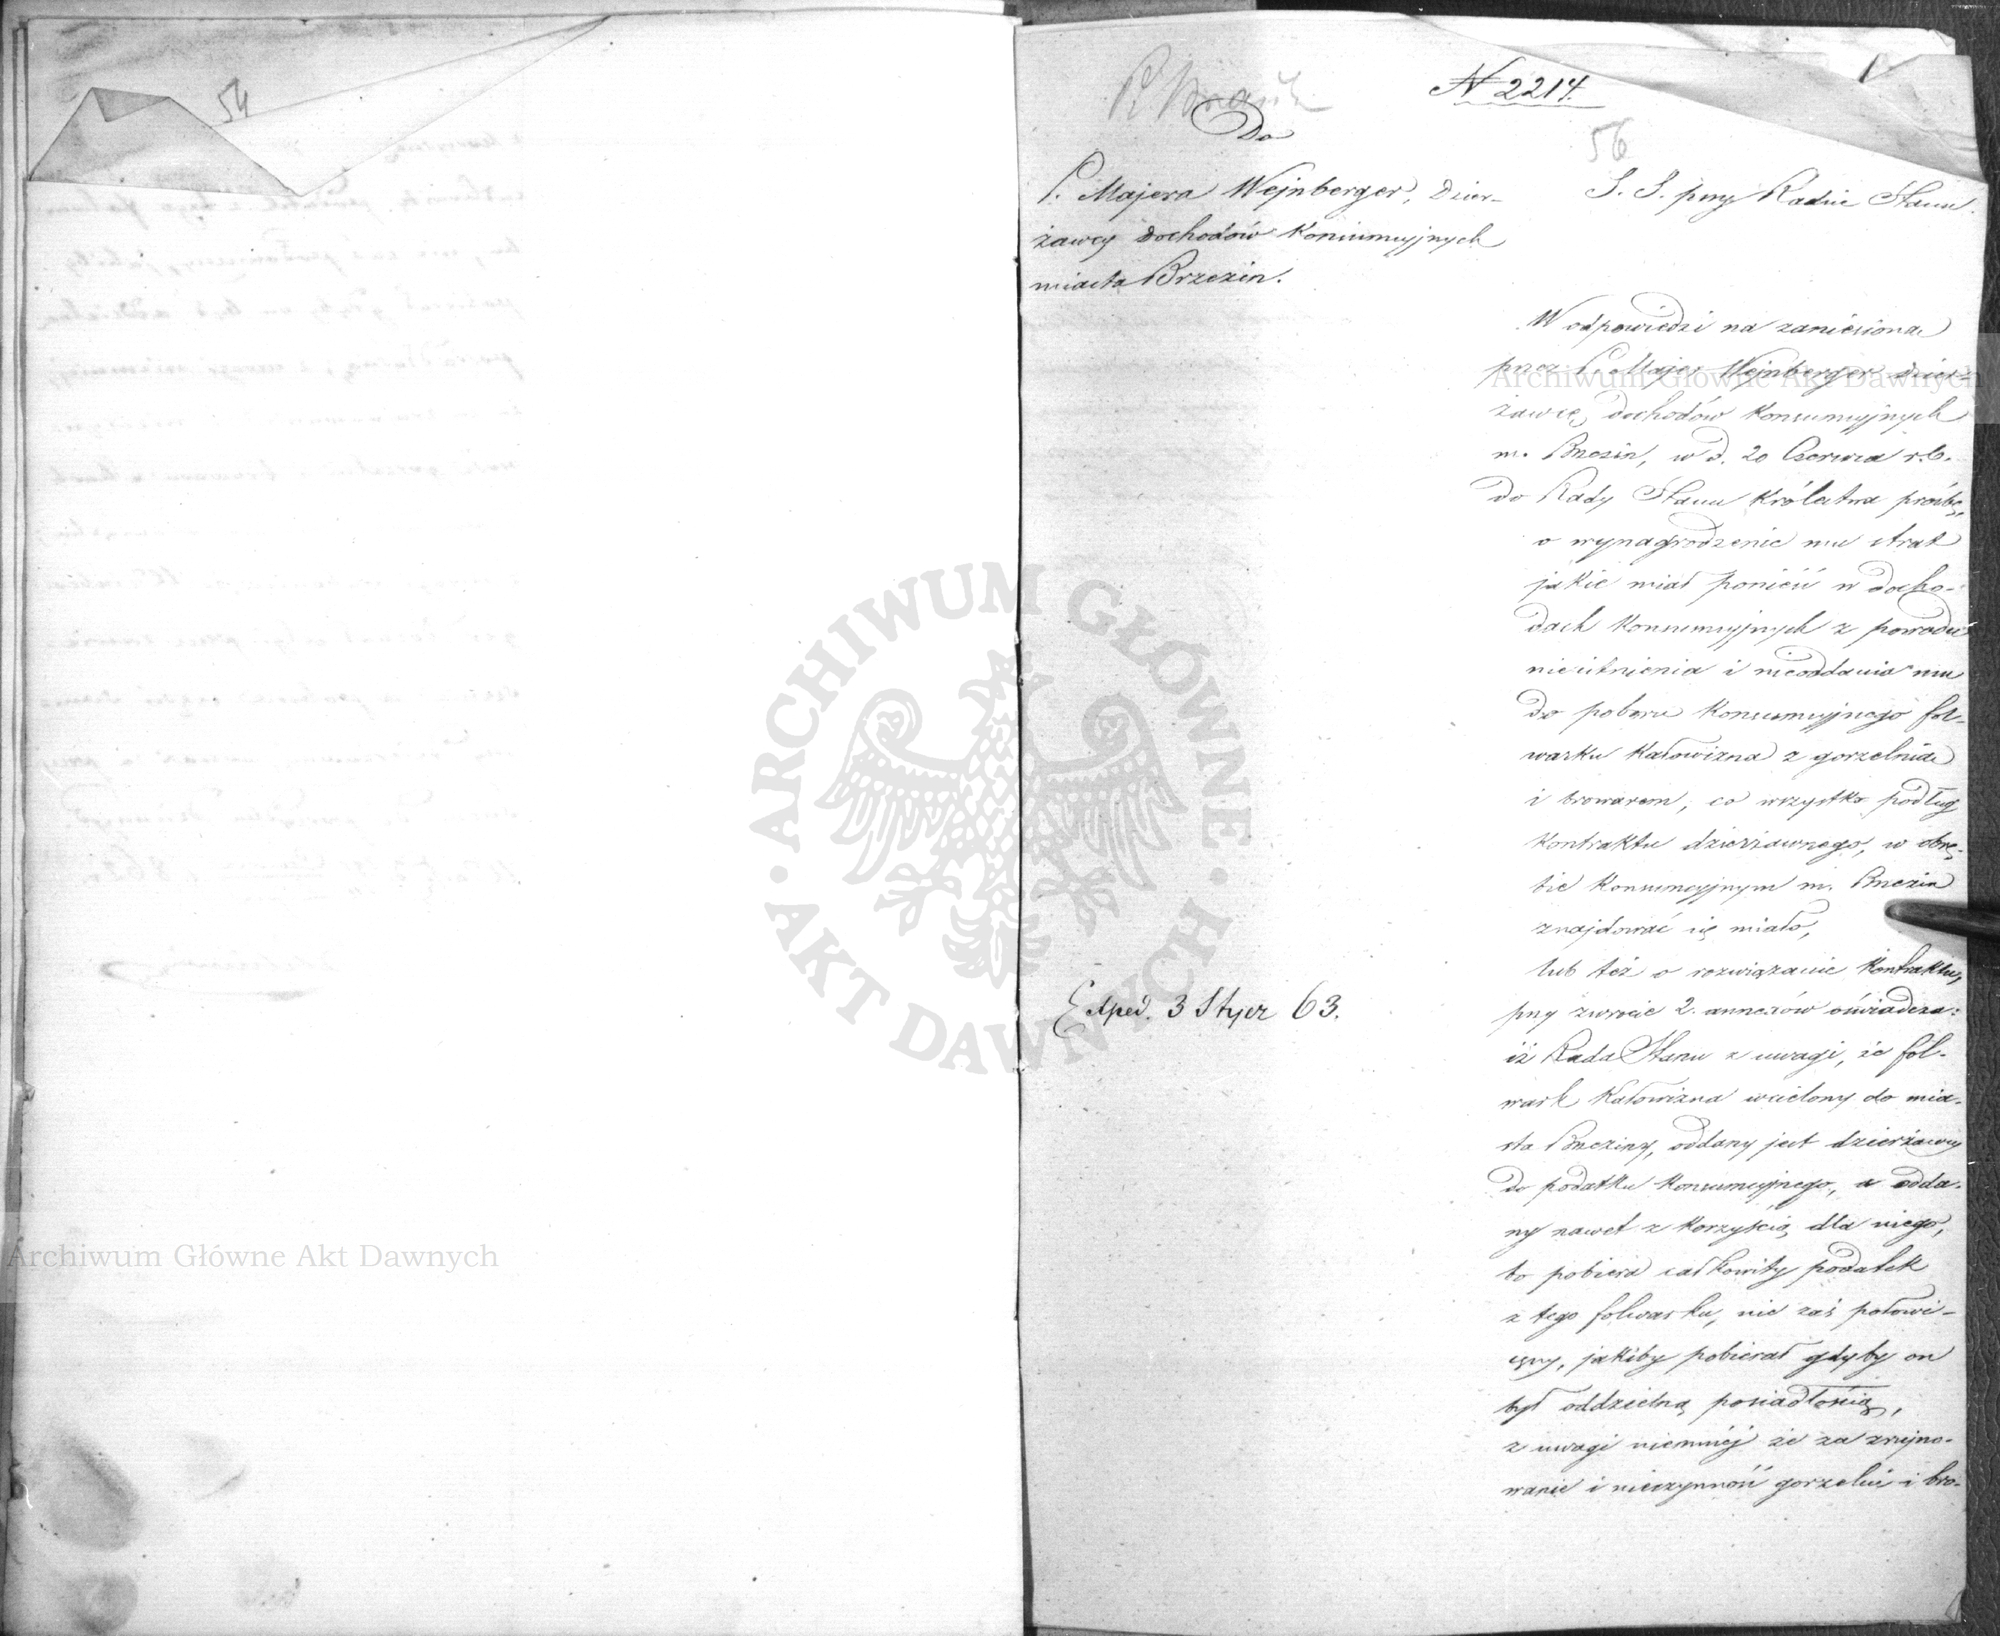 54
N 2214.
56
Do
P. Majera Wejnberger, Dzier-
żawcy dochodów Konsumcyjnych
miasta Brzezin.
S. S. przy Radzie Stanu.
W odpowiedzi na zaniesioną
przez P. Majer Wejnberger dzier-
żawcę dochodów Konsumcyjnych
m. Brzezin, w d. 20 Czerwca r.b.
do Rady Stanu Królestwa prośbę,
o wynagrodzenie mu strat
jakie miał ponieść w docho-
dach Konsumcyjnych z powodu
nieistnienia i nieoddania mu
do poboru Konsumcyjnego fol-
warku Kałowizna z gorzelnią
i browarem, co wszystko podług
Kontraktu dzierżawnego, w obrę-
bie Konsumcyjnym m. Brzezin
znajdować się miało,
lub też o rozwiązanie Kontraktu,
przy zwrocie 2. annexów oświadcza:
iż Rada Stanu z uwagi, że fol-
wark Kałowizna wcielony do mia-
sta Brzeziny, oddany jest dzierżawcy
do podatku Konsumcyjnego, a odda-
ny nawet z korzyścią dla niego,
bo pobiera całkowity podatek
z tego folwarku, nie zaś połowi-
czny, jakiby pobierał gdyby on
był oddzielną posiadłością,
z uwagi niemniej że za zrujno-
wanie i nieczynność gorzelni i bro-
Exped. 3 Stycz 63.
ARCHIWUM GŁÓWNE AKT DAWNYCH
Archiwum Główne Akt Dawnych
Archiwum Główne Akt Dawnych